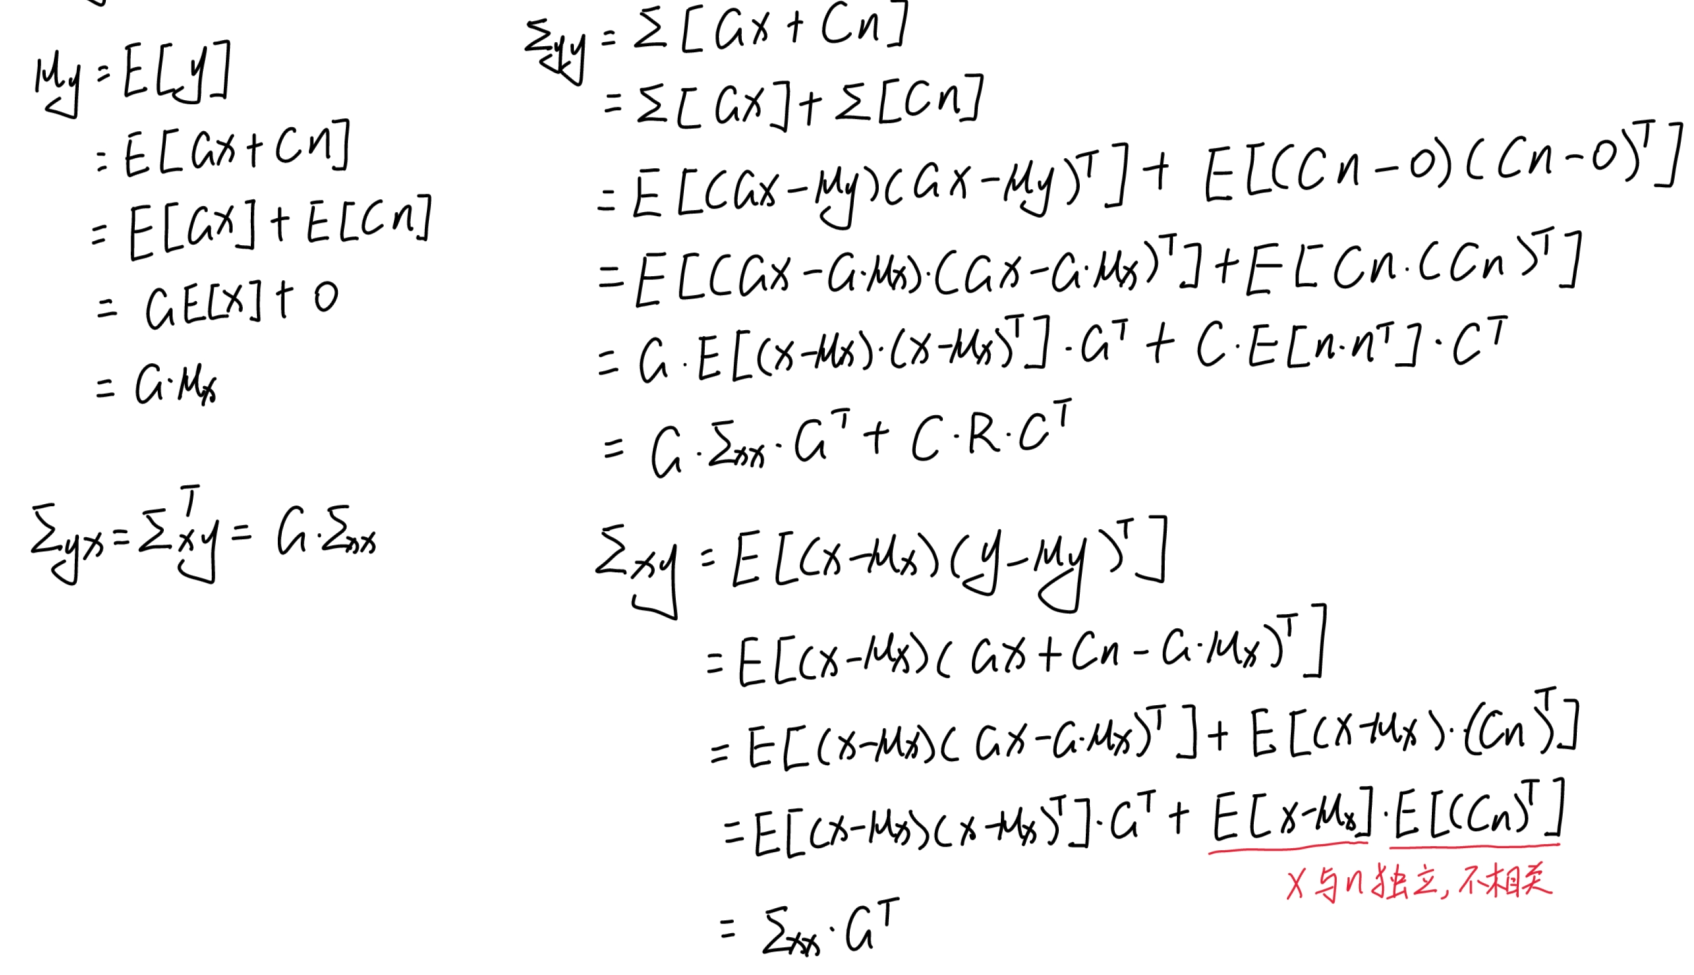 μy = E[y]
= E[Gx + Cn]
= E[Gx] + E[Cn]
= GE[x] + 0
= G·μx
Σyx = Σxy^T = G·Σxx
Σyy = Σ[Gx + Cn]
= Σ[Gx] + Σ[Cn]
= E[(Gx-μy)(Gx-μy)^T] + E[(Cn-0)(Cn-0)^T]
= E[(Gx-G·μx)·(Gx-G·μx)^T] + E[Cn·(Cn)^T]
= G·E[(x-μx)·(x-μx)^T]·G^T + C·E[n·n^T]·C^T
= G·Σxx·G^T + C·R·C^T
Σxy = E[(x-μx)(y-μy)^T]
= E[(x-μx)(Gx+Cn-G·μx)^T]
= E[(x-μx)(Gx-G·μx)^T] + E[(x-μx)·(Cn)^T]
= E[(x-μx)(x-μx)^T]·G^T + E[x-μx]·E[(Cn)^T]
x与n独立,不相关
= Σxx·G^T